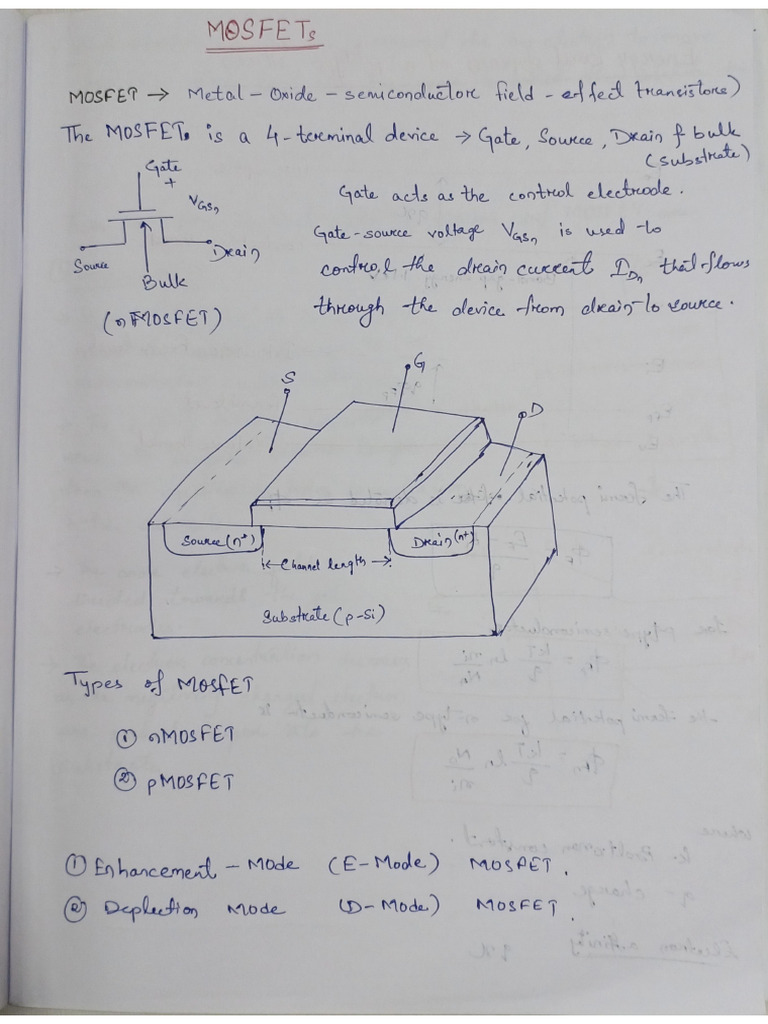 MOSFETs
MOSFET → Metal - Oxide - semiconductor field - effect transistors)
The MOSFETs is a 4-terminal device → Gate, Source, Drain & bulk
(substrate)
Gate
+
VGSn
Source
Drain
Bulk
(nMOSFET)
Gate acts as the control electrode.
Gate-source voltage VGSn is used to
control the drain current IDn that flows
through the device from drain to source.
S
G
D
Source(n+)
Drain(n+)
Channel length
Substrate (p-Si)
Types of MOSFET
① nMOSFET
② pMOSFET
① Enhancement - Mode (E-Mode) MOSFET.
② Depletion Mode (D-Mode) MOSFET.